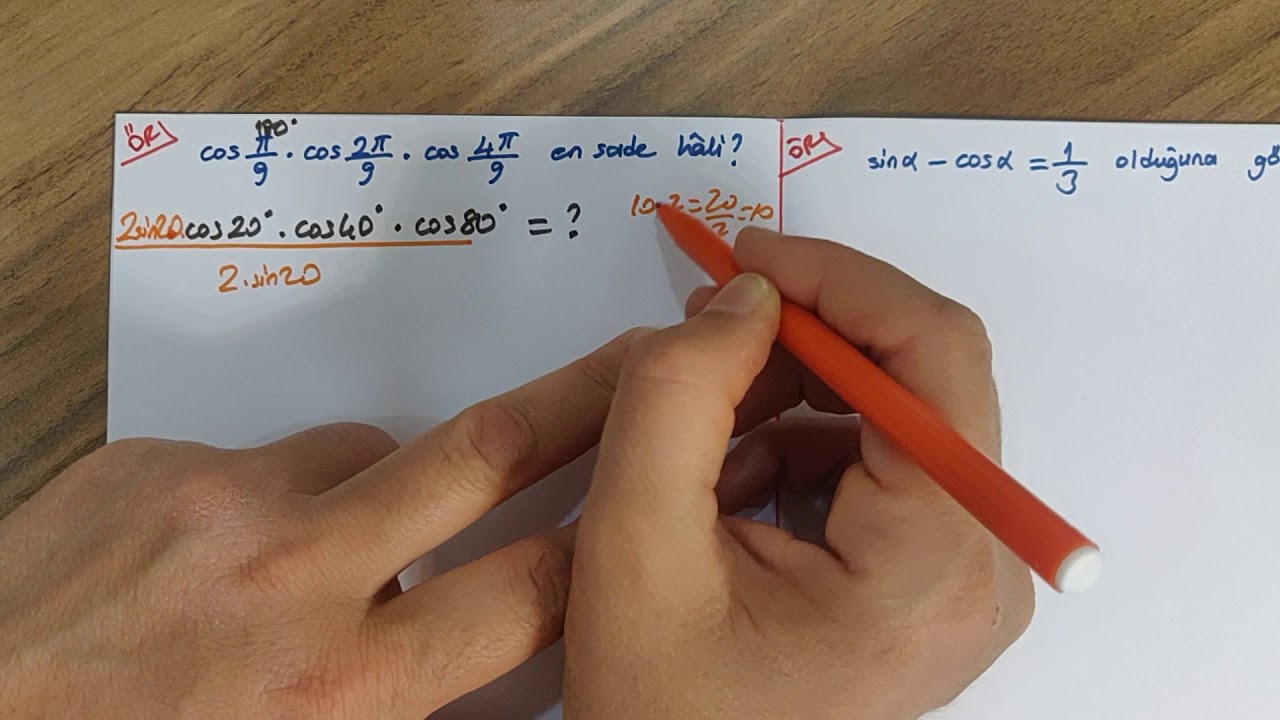 ÖR
180°
cos π/9 . cos 2π/9 . cos 4π/9 en sade hâli?
2sin20.cos20° . cos40° . cos80° = ?
2.sin20
10.2 = 20/2 = 10
ÖR
sinα - cosα = 1/3 olduğuna gö